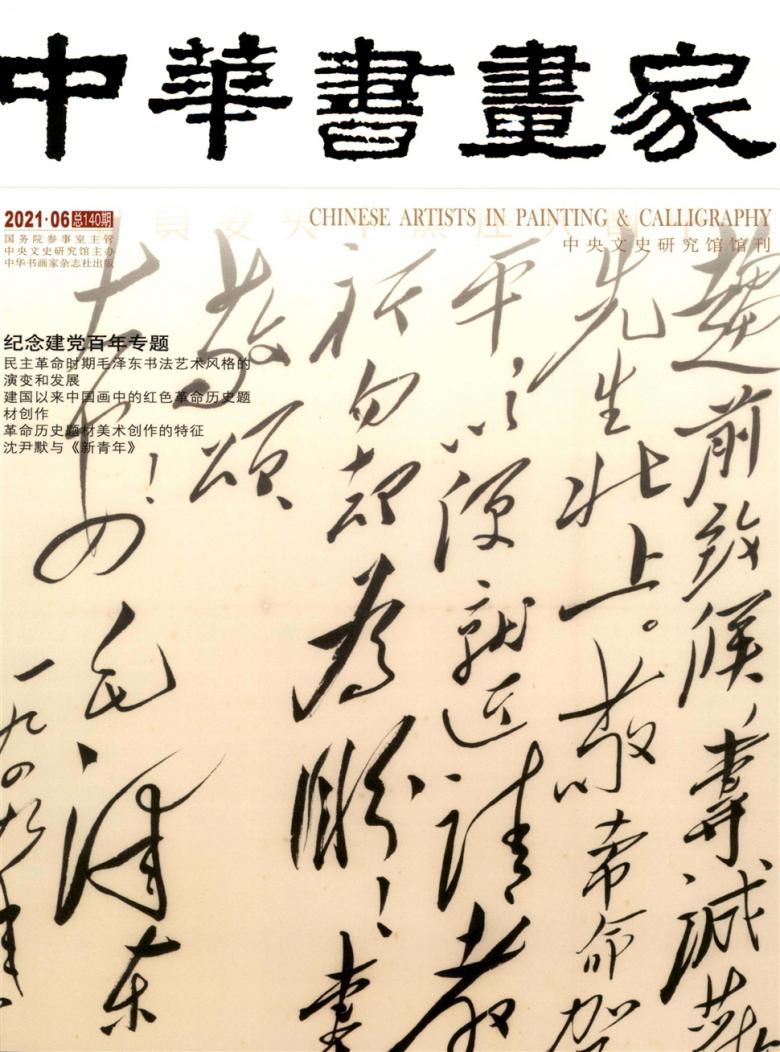 中華書畫家
2021·06 总140期
国务院参事室主管
中央文史研究馆主办
中华书画家杂志社出版
CHINESE ARTISTS IN PAINTING & CALLIGRAPHY
中央文史研究馆馆刊
纪念建党百年专题
民主革命时期毛泽东书法艺术风格的
演变和发展
建国以来中国画中的红色革命历史题
材创作
革命历史题材美术创作的特征
沈尹默与《新青年》
趨前致候，專誠
先生北上。敬希命駕
平，以便就近請教
祈勿却為盼！專
敬頌
大安！
毛泽东
一九四九年